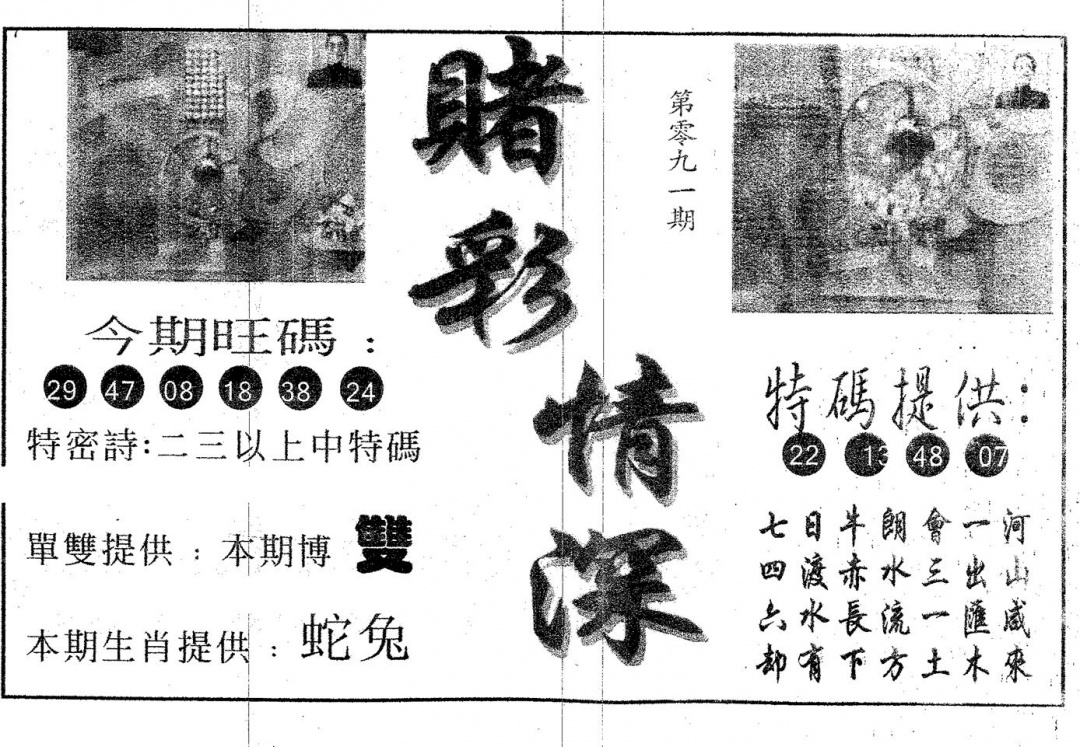 賭彩情深
第零九一期
今期旺碼：
29 47 08 18 38 24
特密詩:二三以上中特碼
單雙提供：本期博 雙
本期生肖提供：蛇兔
特碼提供：
22 13 48 07
河山咸來
一出匯木
會三一土
朗水流方
牛赤長下
日渡水有
七四六却